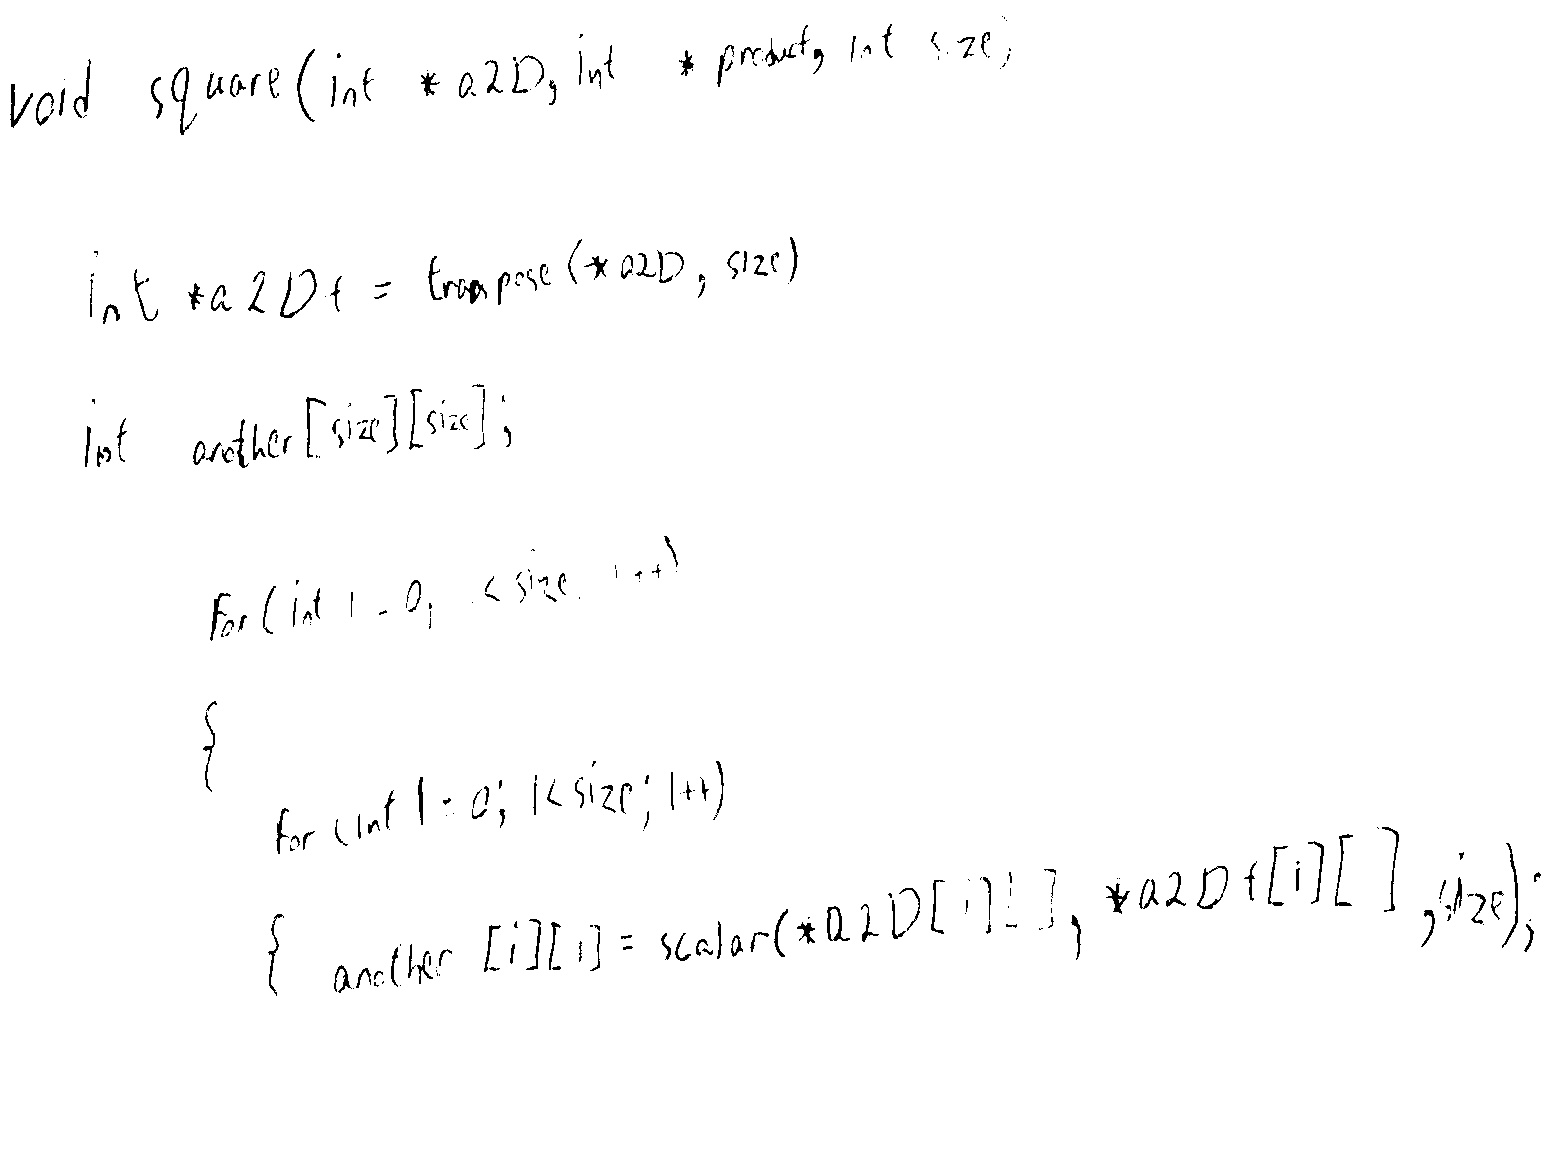 void square(int *a2D, int * product, int size;
int *a2Dt = transpose(*a2D, size)
int another[size][size];
For(int i - 0; < size. i++)
{
for (int i = 0; i< size; i++)
{ another [i][i] = scalar(*a2D[i][ ], *a2Dt[i][ ] ,size);